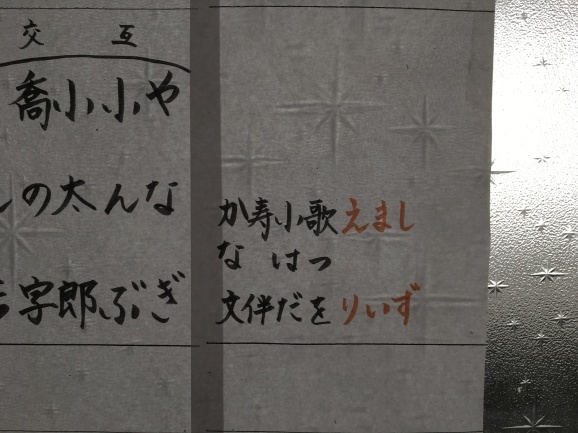 しず
まい
えり
歌つを
小はだ
寿伴
かな文
交互
やなぎ
小んぶ
小太郎
喬の字